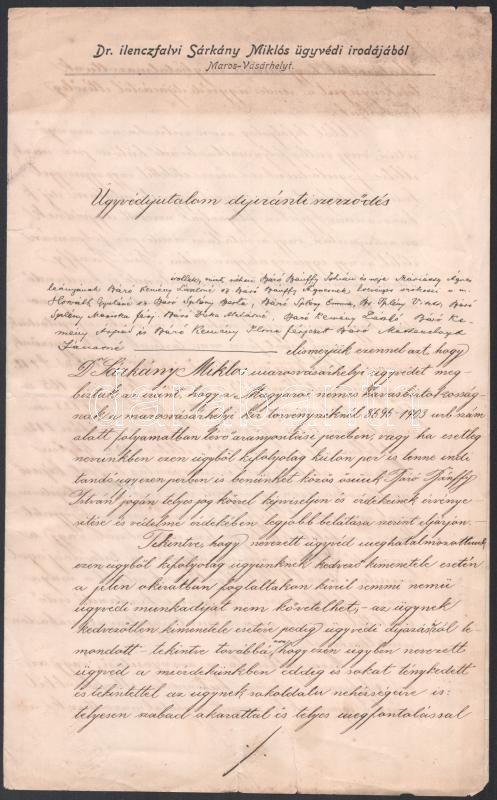 Dr. ilenczfalvi Sárkány Miklós ügyvédi irodájából
Maros-Vásárhelyt.
Ügyvédjutalom díj iránti szerződés
néhai Báró Bánffy István és neje Máriássy Ágnes
leányának Báró Kemény és Báró Bánffy Ágnesnek törvényes örökösei u. m.
Horváth Gyuláné sz. Báró Splény Berta, Báró Splény Emma, Br. Splény Viktor, Báró
Splény Mariska férj. Báró Melánie, Báró Kemény László Báró Ke-
mény Árpád és Báró Kemény Ilona férjezett Báró
elismerjük ezennel azt, hogy
Dr Sárkány Miklós marosvásárhelyi ügyvédet meg-
bíztuk az iránt, hogy a Magyarói nemes kavasbirtokosság-
nak a marosvásárhelyi kir törvényszéknél 8698-1903 urb szám
alatt folyamatban lévő arányosítási perében, vagy ha esetleg
nevünkben ezen ügyből kifolyólag külön per is lenne indí-
tandó ugy ezen perben is bennünket közös ősünk Báró Bánffy
István jogán teljes joggal képviseljen és érdekeinek érvénye-
sítése és védelme érdekében legjobb belátása szerint eljárjon.-
Tekintve, hogy nevezett ügyvéd meghatalmazottunk
ezen ügyből kifolyólag ügyünknek kedvező kimenetele esetén
a jelen okiratban foglaltakon kivül semmi nemü
ügyvédi munkadíját nem követelhet, - az ügynek
kedvezőtlen kimenetele esetére pedig ügyvédi díjazásáról le-
mondott - tekintve továbbá, hogy ezen ügyben nevezett
ügyvéd a mi érdekünkben eddig is sokat ténykedett
és tekintettel az ügynek sokoldalu nehézségeire is:
teljesen szabad akarattal és teljes megfontolással
./.